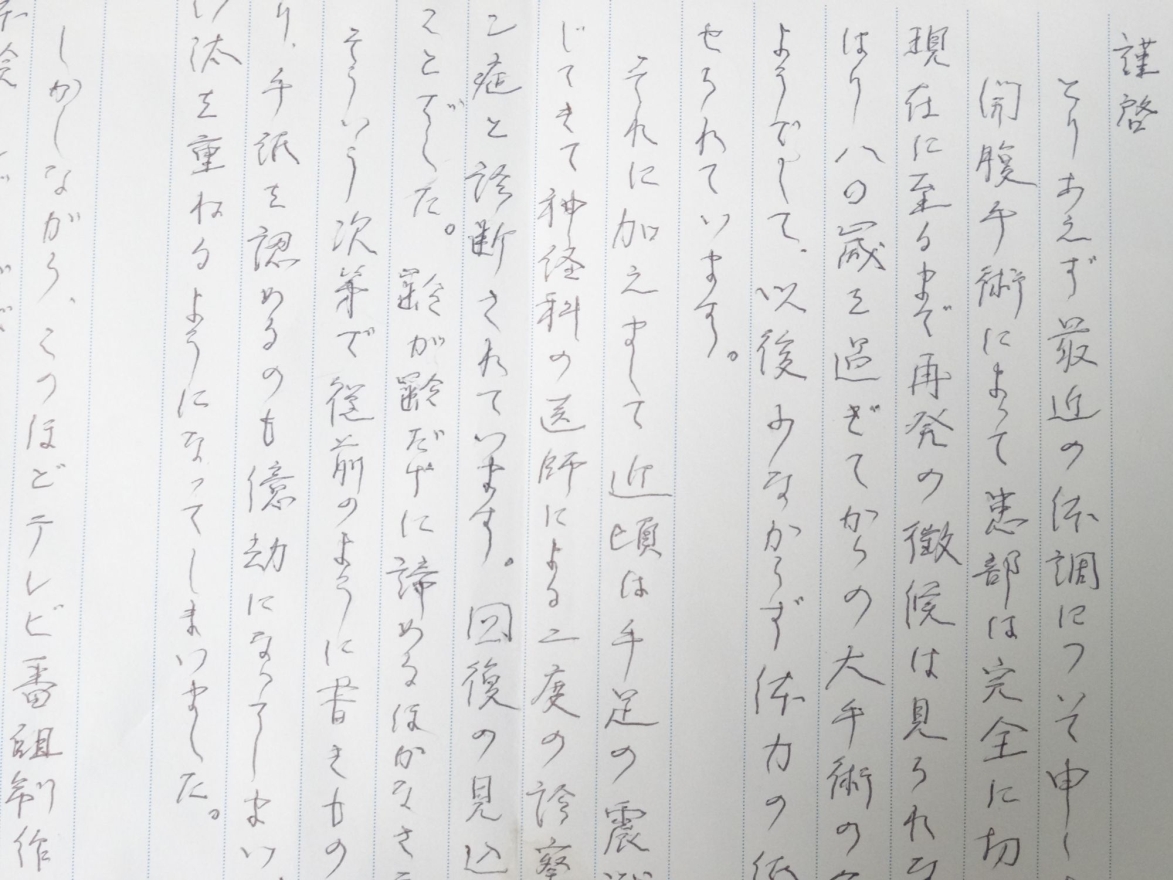 謹啓
とりあえず最近の体調について申し
開腹手術によって患部は完全に切
現在に至るまで再発の徴候は見られな
はり八〇歳を過ぎてからの大手術の
ようでして、以後少なからず体力の低
せられています。
それに加えまして近頃は手足の震
じてきて神経科の医師による二度の診察
症と診断されています。回復の見込
ことでした。齢が齢だけに諦めるほかなさ
そういう次第で従前のように書きもの
り、手紙を認めるのも億劫になってしまい
汰を重ねるようになってしまいました。
しかしながら、こうほどテレビ番組制作